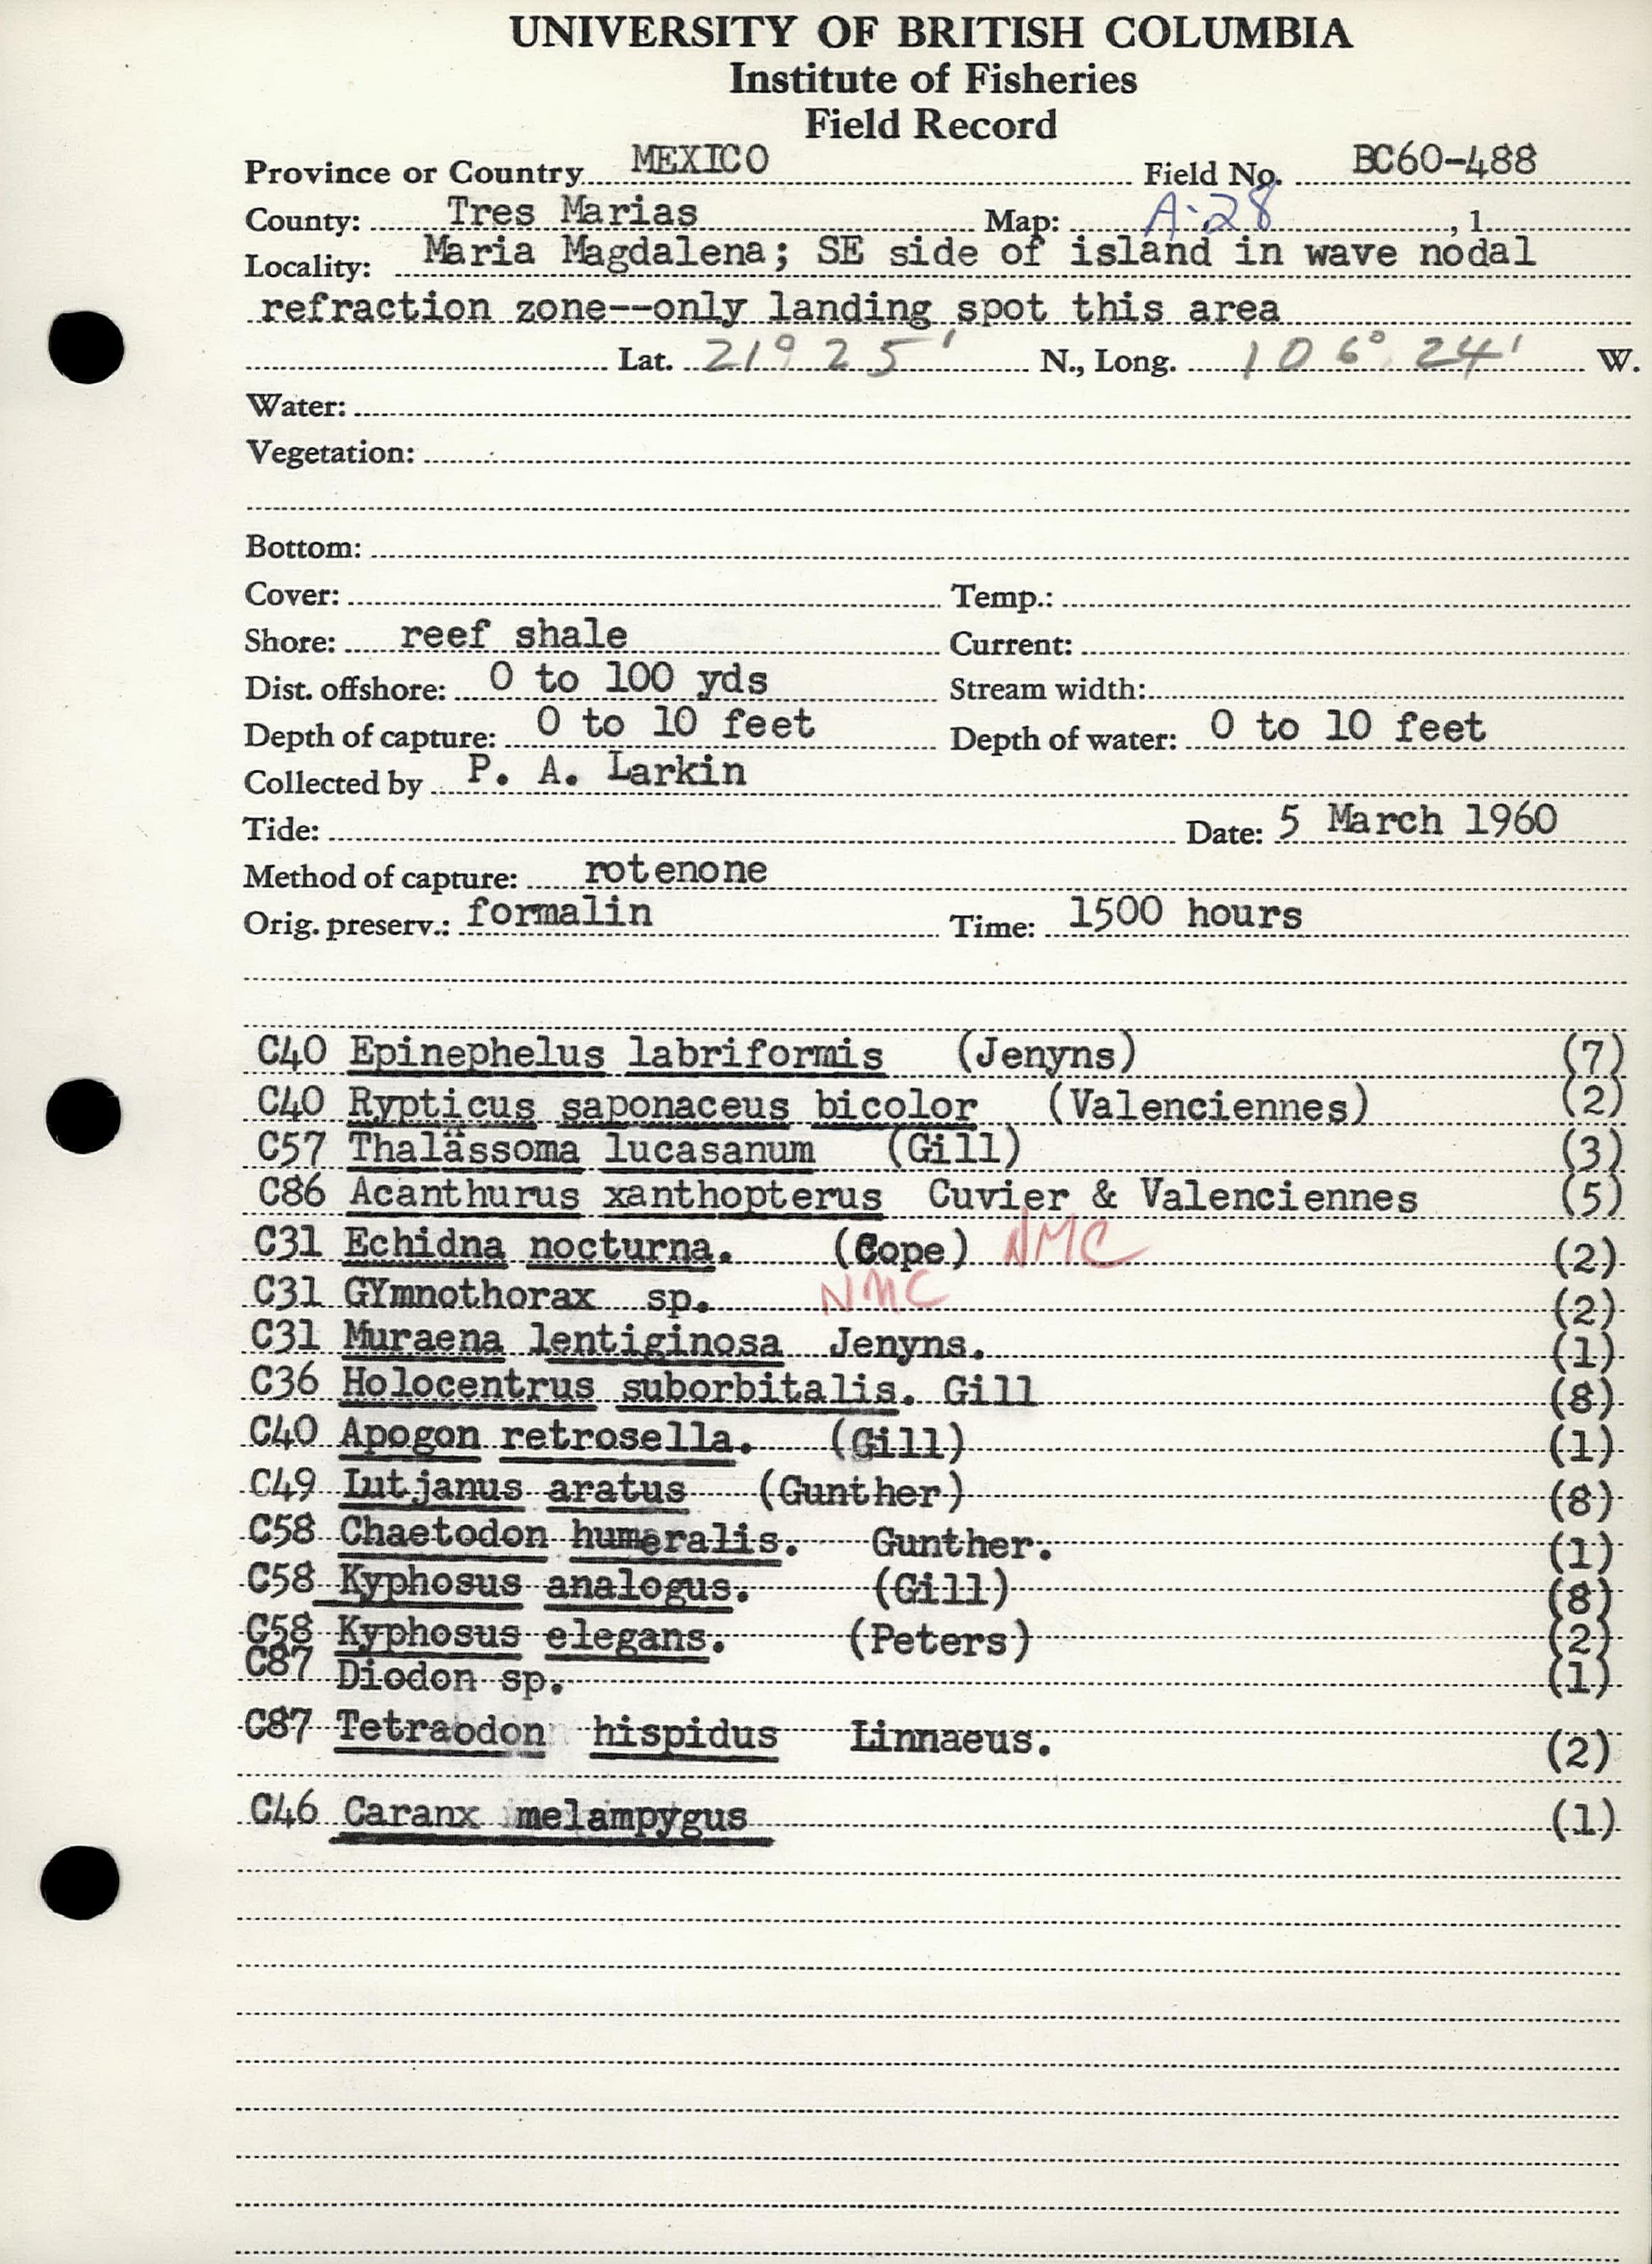 UNIVERSITY OF BRITISH COLUMBIA
Institute of Fisheries
Field Record
Province or Country MEXICO Field No. BC60-488
County: Tres Marias Map: A-28 , 1
Locality: Maria Magdalena; SE side of island in wave nodal
refraction zone--only landing spot this area
Lat. 21° 25' N., Long. 106° 24' W.
Water:
Vegetation:
Bottom:
Cover: Temp.:
Shore: reef shale Current:
Dist. offshore: 0 to 100 yds Stream width:
Depth of capture: 0 to 10 feet Depth of water: 0 to 10 feet
Collected by P. A. Larkin
Tide: Date: 5 March 1960
Method of capture: rotenone
Orig. preserv.: formalin Time: 1500 hours
C40 Epinephelus labriformis (Jenyns) (7)
C40 Rypticus saponaceus bicolor (Valenciennes) (2)
C57 Thalassoma lucasanum (Gill) (3)
C86 Acanthurus xanthopterus Cuvier & Valenciennes (5)
C31 Echidna nocturna. (Cope) NMC (2)
C31 GYmnothorax sp. NMC (2)
C31 Muraena lentiginosa Jenyns. (1)
C36 Holocentrus suborbitalis. Gill (8)
C40 Apogon retrosella. (Gill) (1)
C49 Lutjanus aratus (Gunther) (8)
C58 Chaetodon humeralis. Gunther. (1)
C58 Kyphosus analogus. (Gill) (8)
C58 Kyphosus elegans. (Peters) (2)
C87 Diodon sp. (1)
C87 Tetraodon hispidus Linnaeus. (2)
C46 Caranx melampygus (1)